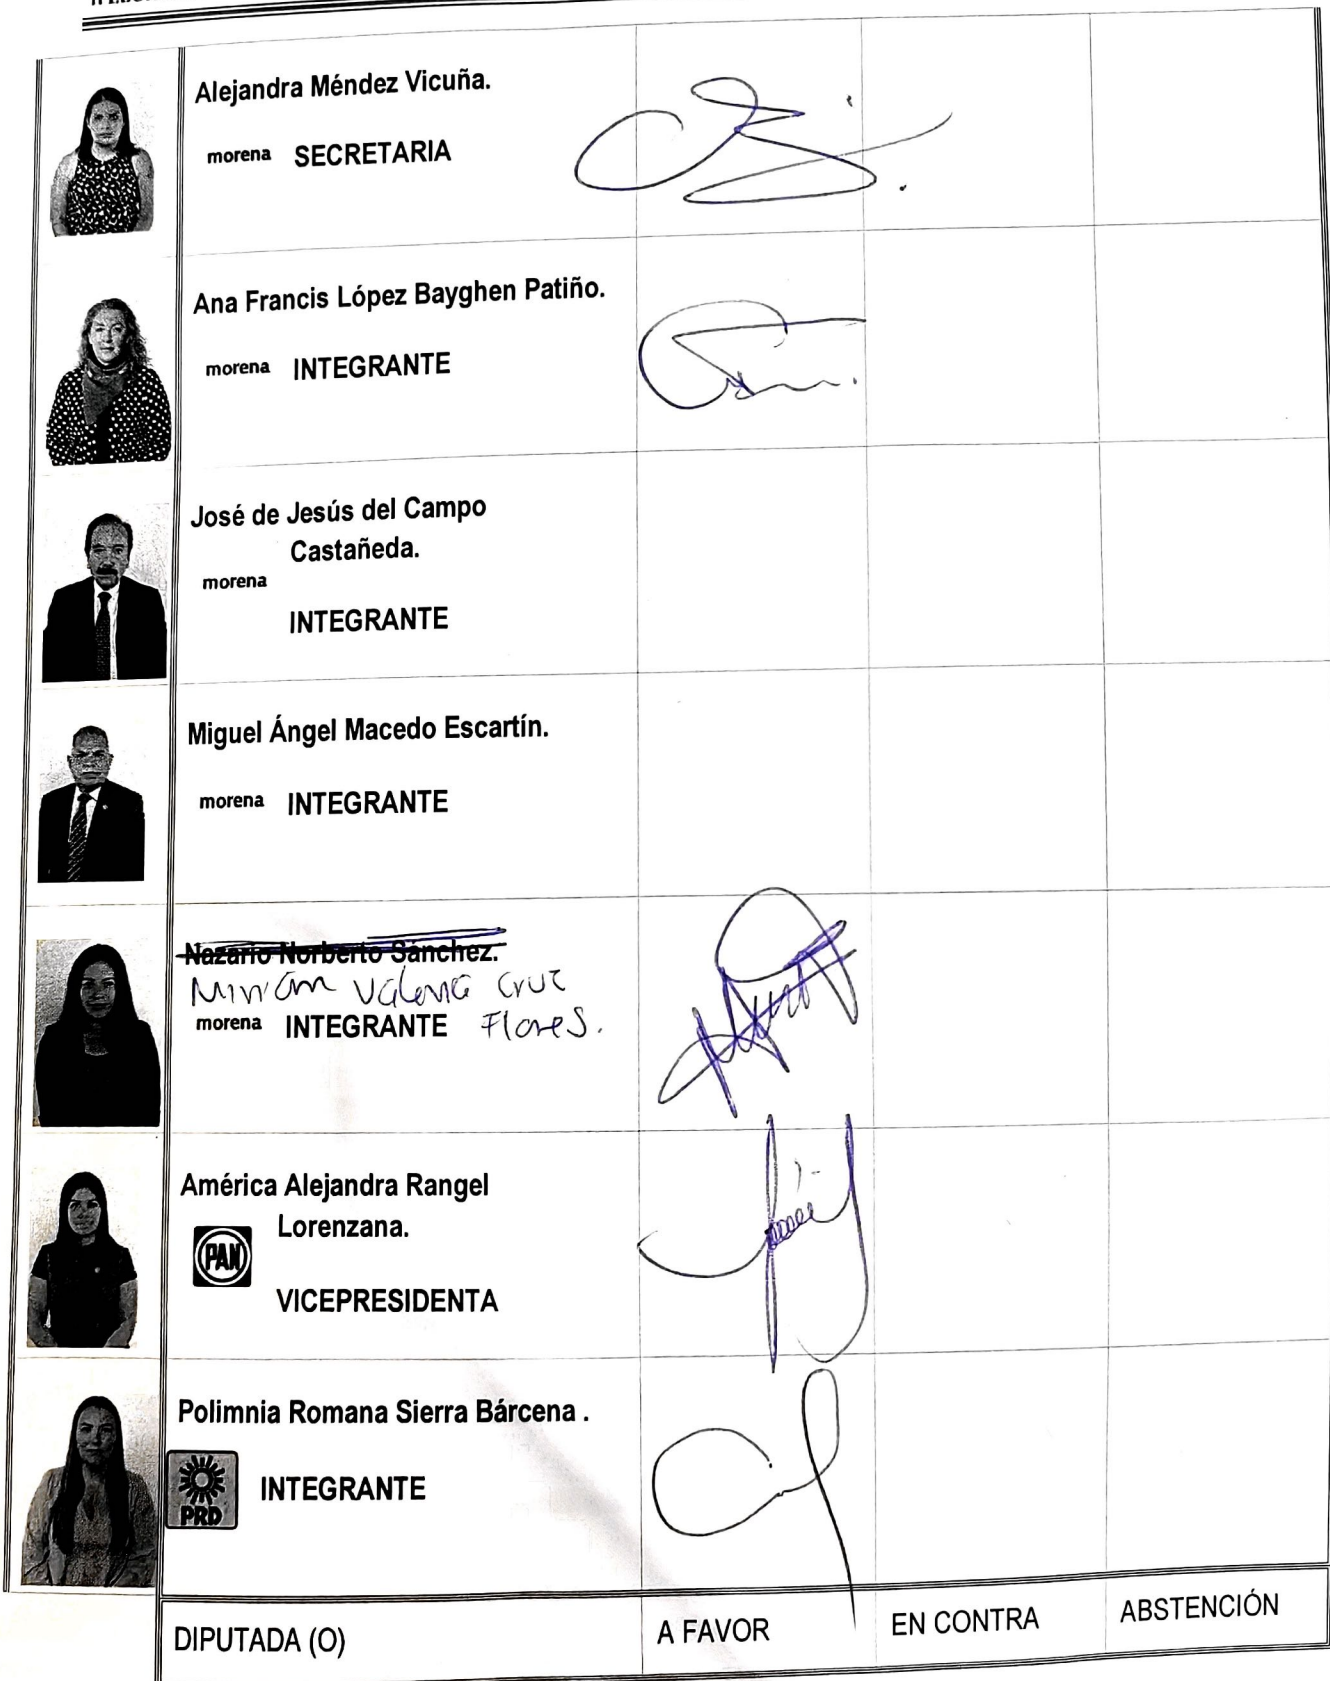 Alejandra Méndez Vicuña.
morena SECRETARIA
Ana Francis López Bayghen Patiño.
morena INTEGRANTE
José de Jesús del Campo
Castañeda.
morena
INTEGRANTE
Miguel Ángel Macedo Escartín.
morena INTEGRANTE
Nazario Norberto Sánchez.
Valeria Cruz
morena INTEGRANTE Flores.
América Alejandra Rangel
Lorenzana.
PAN
VICEPRESIDENTA
Polimnia Romana Sierra Bárcena .
INTEGRANTE
PRD
DIPUTADA (O) A FAVOR EN CONTRA ABSTENCIÓN